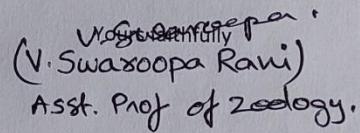 (V. Swaroopa Rani)
Asst. Prof of Zoology.